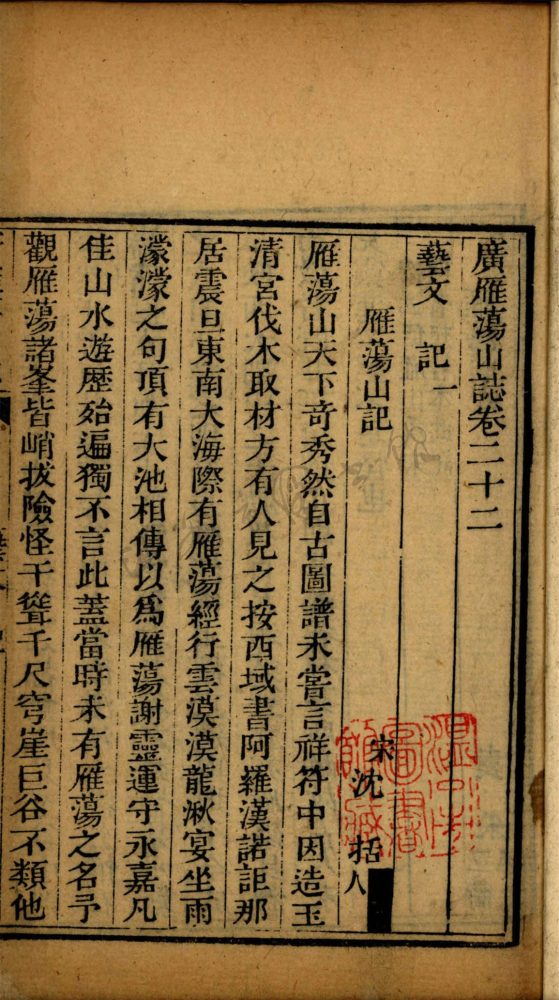 廣雁蕩山誌卷二十二
藝文 記一
雁蕩山記
宋沈 括人
雁蕩山天下奇秀然自古圖譜未嘗言祥符中因造玉
清宮伐木取材方有人見之按西域書阿羅漢諾詎那
居震旦東南大海際有雁蕩經行雲漠漠龍湫宴坐雨
濛濛之句頂有大池相傳以爲雁蕩謝靈運守永嘉凡
佳山水遊歷殆遍獨不言此蓋當時未有雁蕩之名予
觀雁蕩諸峯皆峭拔險怪干聳千尺穹崖巨谷不類他